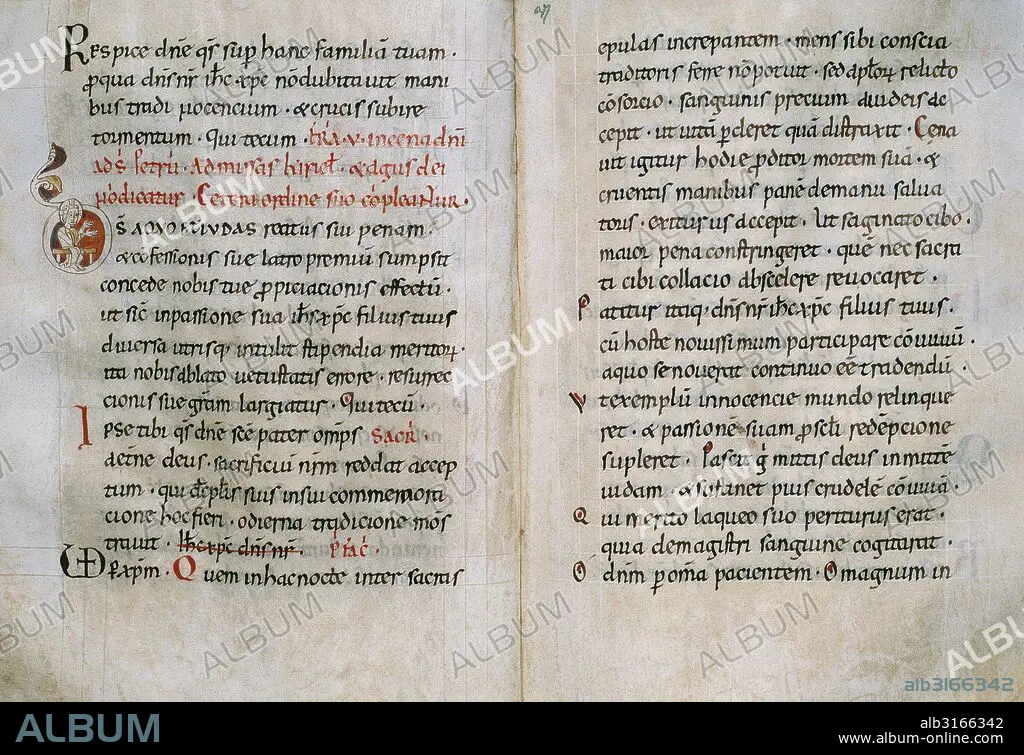 Respice dñe q̃s sup̄ hanc familiã tuam·
ꝓqua dñs nr̃ ihc̃ xp̃c nõ dubitavit mani
bus tradi nocencium· & crucis subire
tormentum· Qui tecum· F̃RA·V·in cena dñi
ad s̃ petrũ· Ad missas kiriel̃· & agus dei
nõ dicatur· Ceteri ordine suo cõpleantur·
D̃S A QVO & IVDAS reatus sui penam·
& cõfessionis sue latro premiũ sumpsit
concede nobis tue ꝓpiciacionis effectũ·
ut sic̃ in passione sua ihc̃ xp̃c filius tuus
diversa utrisq; intulit stipendia meritoꝝ·
ita nobis ablato vetustatis errore· resurrec
cionis sue gr̃am largiatur· Qui tecũ
IPSE tibi q̃s dñe sc̃e pater omp̃s SACR̃·
aetne deus· sacrificiũ nr̃m reddat accep
tum· qui discipl̃is suis in sui commemora
cione hoc fieri· odierna tradicione mõs
travit· ihc̃ xp̃c dñs nr̃· P̃fac̃·
VD p̱ xp̃m· Quem in hac nocte inter sacras
27
epulas increpantem· mens sibi conscia
traditoris ferre nõ potuit· sed apl̃oꝝ relicto
cõsorcio· sanguinis precium a iudeis ac
cepit· ut vitã ꝑderet quã distraxit· Cena
vit igitur hodie ꝓditor mortem suã· &
cruentis manibus panẽ de manu salva
toris· exiturus accepit· Ut saginato cibo·
maior pena constringeret· quẽ nec sacra
ti cibi collacio ab scelere revocaret·
Patitur itaq; dñs nr̃ ihc̃ xp̃c filius tuus·
cũ hoste novissimum participare cõviviũ·
a quo se noverat continuo eẽ tradendũ·
Vt exemplũ innocencie mundo relinque
ret· & passionẽ suam ꝓ sc̃li redẽpcione
supleret· Pascit g̃ mittis deus inmitẽ
iudam· & sustinet pius crudelẽ cõvivã·
Qui merito laqueo suo periturus erat·
quia de magistri sanguine cogitarat·
O dñm ꝑ om̃a pacientem· O magnum in
ALBUM
alb3166342
ALBUM
alb3166342
www.album-online.com